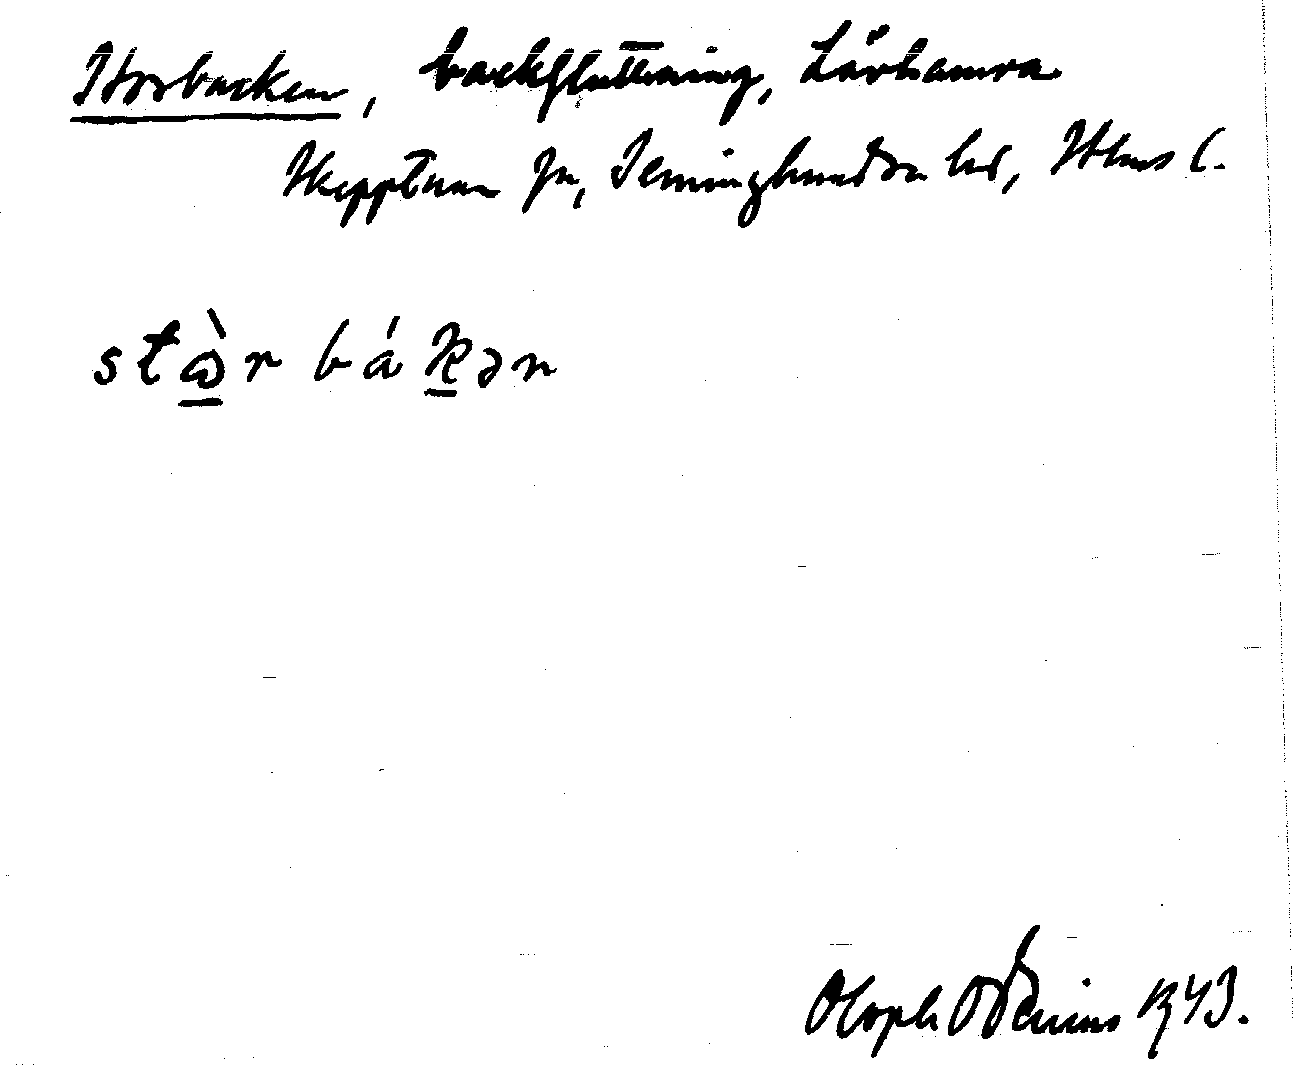 Storbacken, backsluttning, Lövhamra
Skepptuna sn, Seminghundra hd, Sthms l.
stɷ̀r bákən
Oloph Odenius 1943.